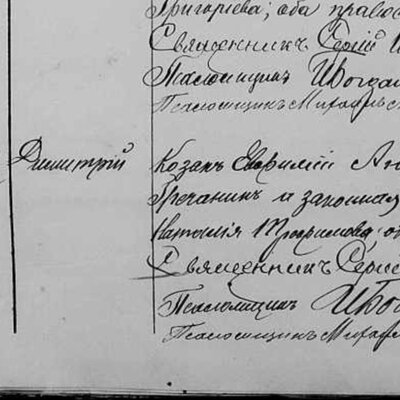 Григорієва; оба правос
Священникъ Сергій
Псаломщикъ И. Богда
Псаломщикъ Михаилъ
Димитрій
Козакъ Евфимій Ан
Гречанинъ и законная
Наталія Трофимова об
Священникъ Сергі
Псаломщикъ И. Бог
Псаломщикъ Михаил